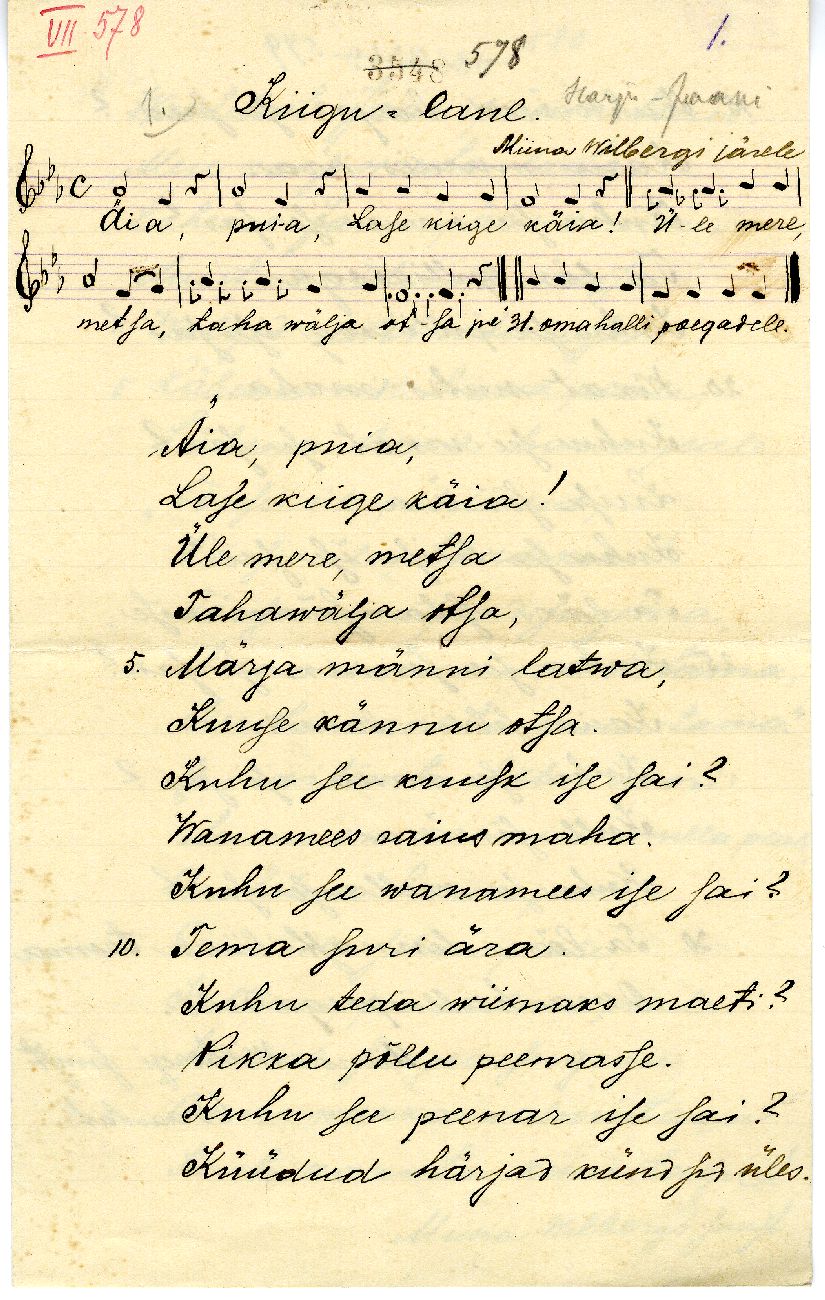 VII 578
1.
3548 578
1.) Kiigu-laul. Harju-Jaani
Miina Wilbergi järele
Äia, puia, Lase kiige käia! Ü-le mere,
metsa, taha wälja ot-sa jne 31. oma halli poegadele.
Äia, puia,
Lase kiige käia!
Üle mere, metsa
Tahawälja otsa,
5. Märja männi latwa,
Kuuse kännu otsa.
Kuhu see kuusk ise sai?
Wanamees raius maha.
Kuhu see wanamees ise sai?
10. Tema suri ära.
Kuhu teda wiimaks maeti?
Pikka põllu peenrasse.
Kuhu see peenar ise sai?
Küüdud härjad kündsid üles.